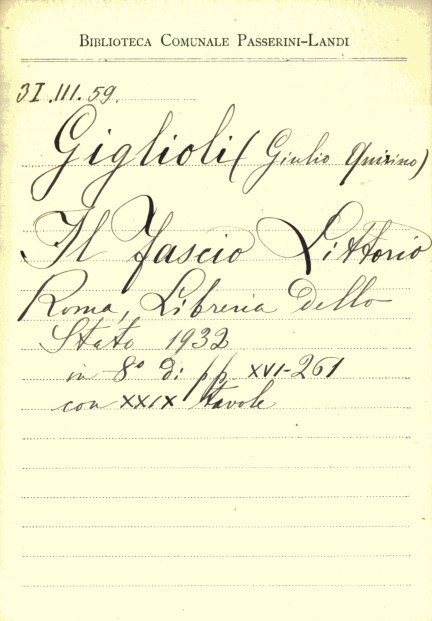 BIBLIOTECA COMUNALE PASSERINI-LANDI
3I.III.59.
Giglioli (Giulio Quirino)
Il fascio Littorio
Roma, Libreria dello
Stato 1932
in -8º di pp. XVI-261
con XXIX tavole